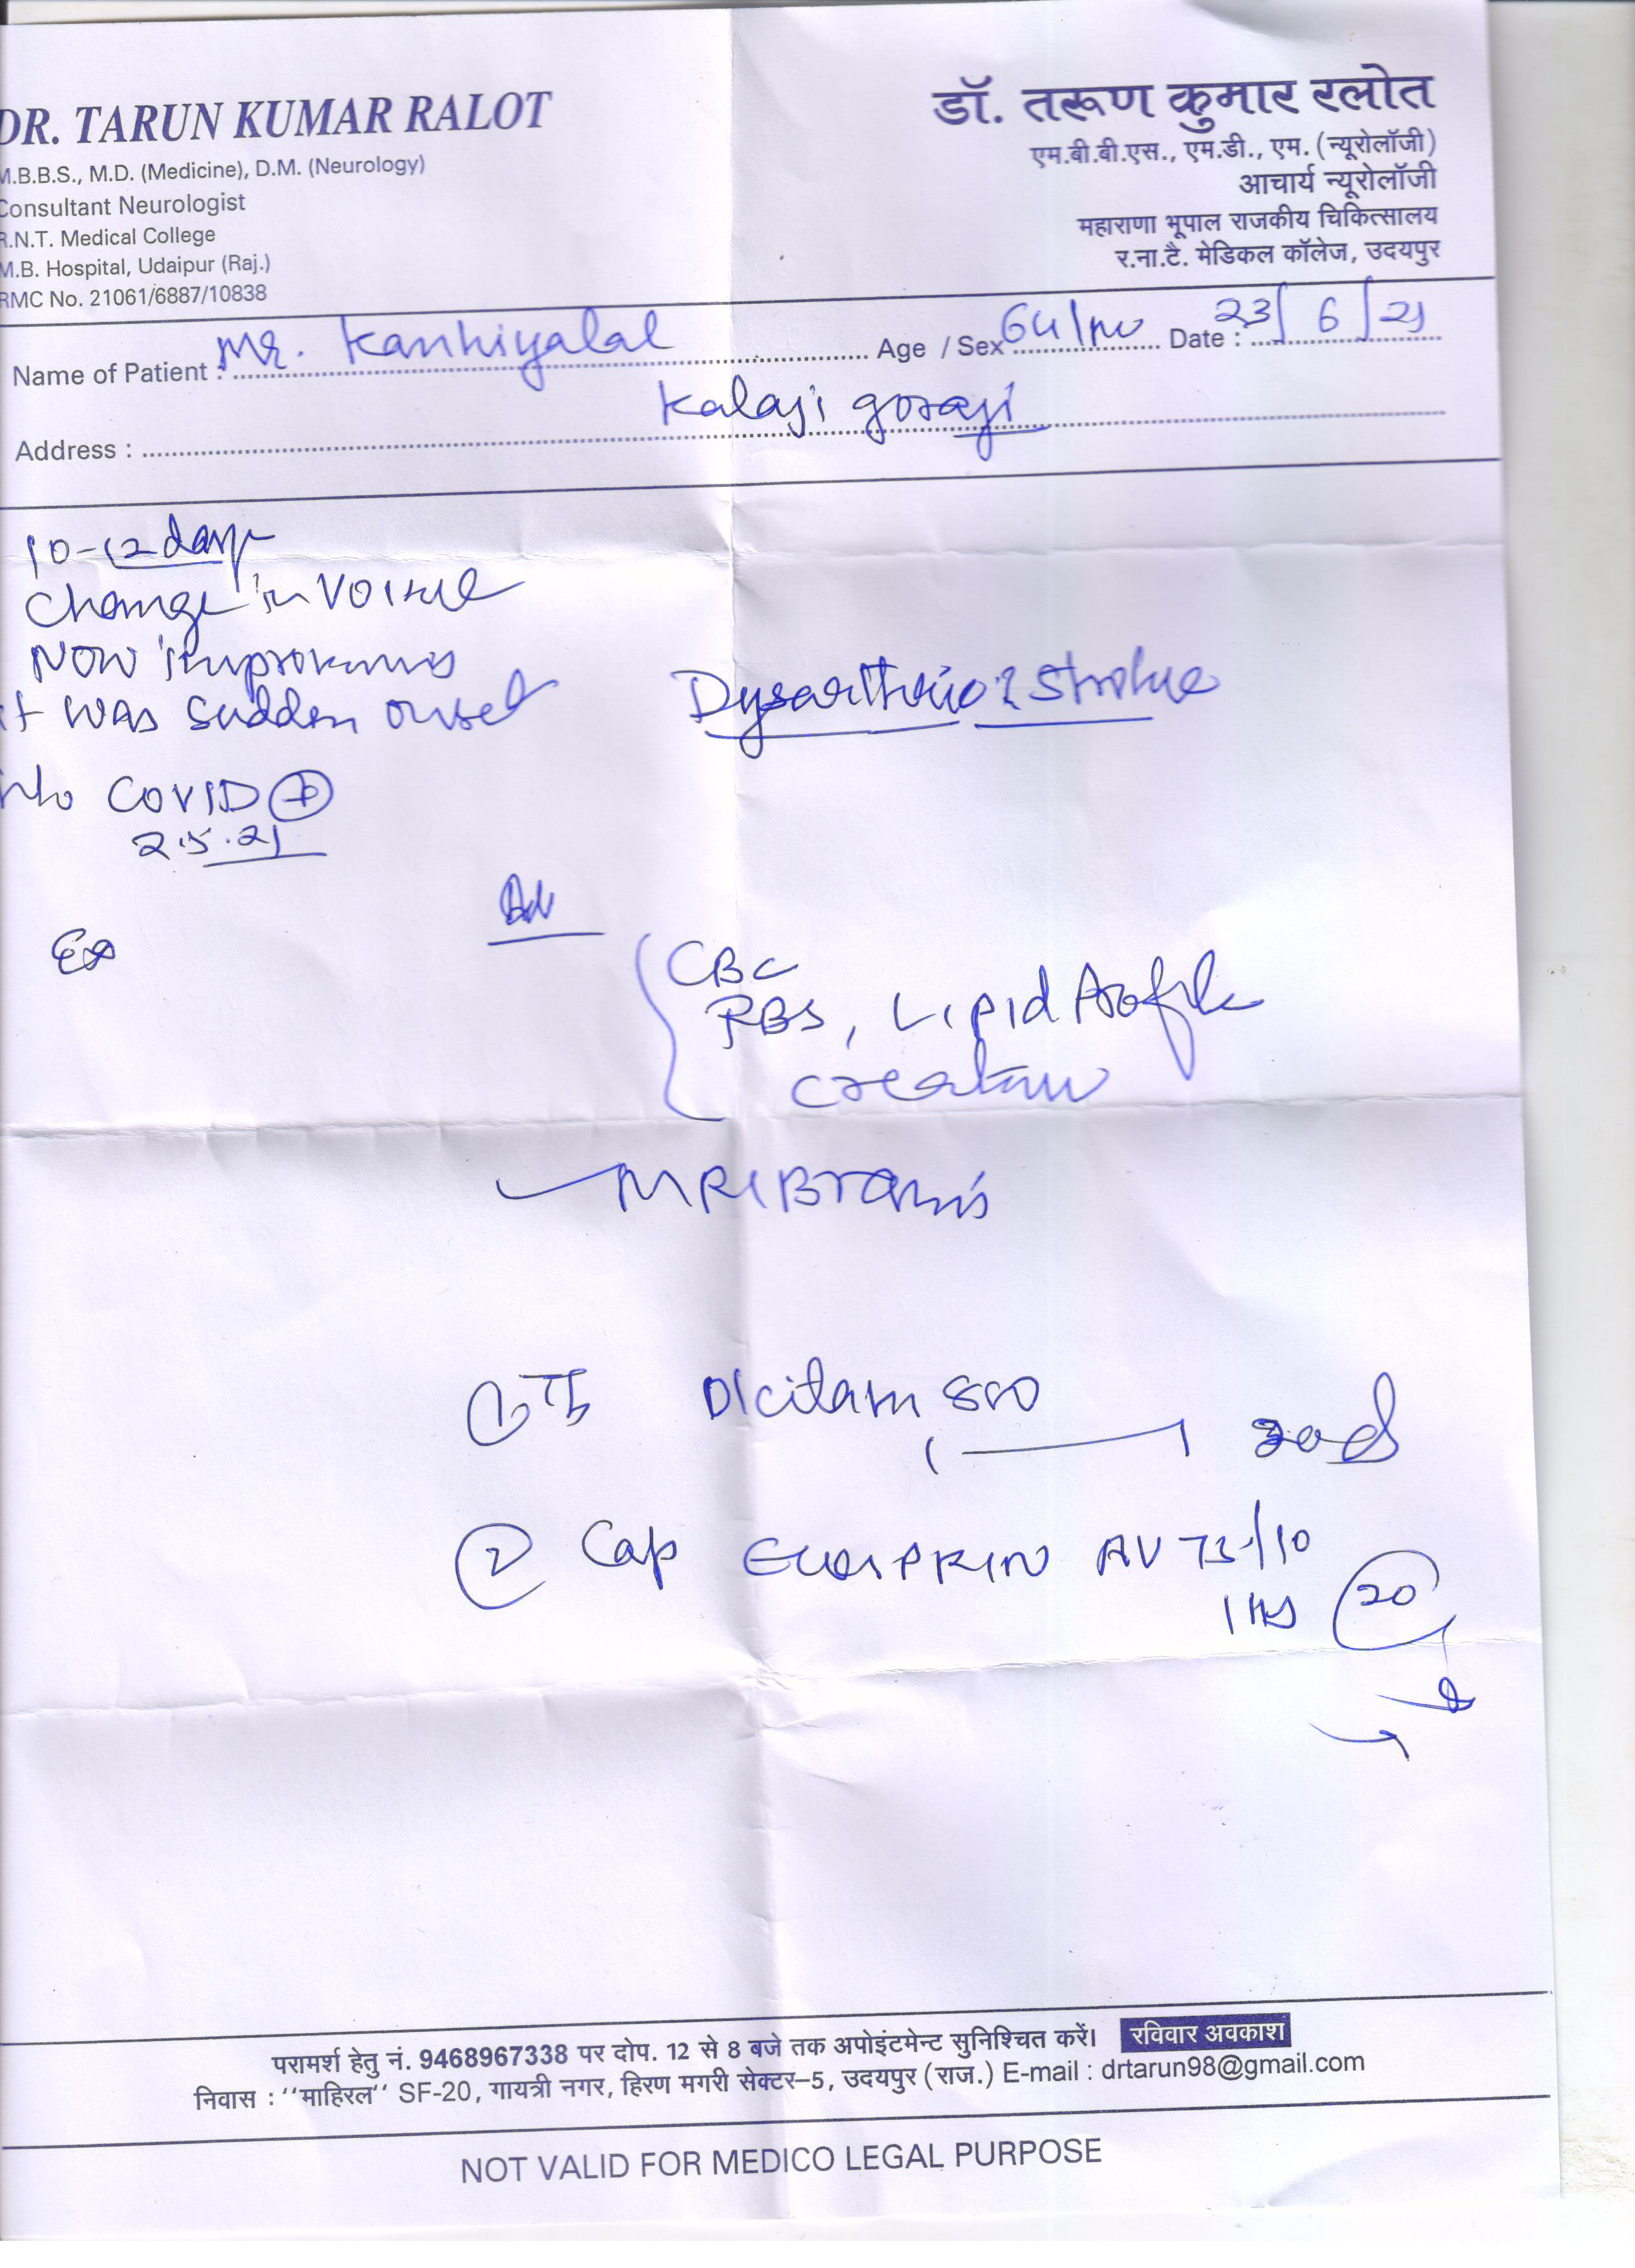 DR. TARUN KUMAR RALOT
M.B.B.S., M.D. (Medicine), D.M. (Neurology)
Consultant Neurologist
R.N.T. Medical College
M.B. Hospital, Udaipur (Raj.)
RMC No. 21061/6887/10838
डॉ. तरूण कुमार रलोत
एम.बी.बी.एस., एम.डी., एम. (न्यूरोलॉजी)
आचार्य न्यूरोलॉजी
महाराणा भूपाल राजकीय चिकित्सालय
र.ना.टै. मेडिकल कॉलेज, उदयपुर
Name of Patient : Mr. Kanhiyalal Age / Sex 64/m Date : 23/6/21
Address : Kalaji goraji
10-12 days
Change in
Now improving
it was sudden onset
Dysarthria ? Stroke
h/o COVID +
2.5.21
Adv
CBC
RBS, Lipid Profile
MRI Brain
1 Tb 800
2 Cap AV 75/10
1 HS 20
परामर्श हेतु नं. 9468967338 पर दोप. 12 से 8 बजे तक अपोइंटमेन्ट सुनिश्चित करें। रविवार अवकाश
निवास : ''माहिरल'' SF-20, गायत्री नगर, हिरण मगरी सेक्टर-5, उदयपुर (राज.) E-mail : drtarun98@gmail.com
NOT VALID FOR MEDICO LEGAL PURPOSE